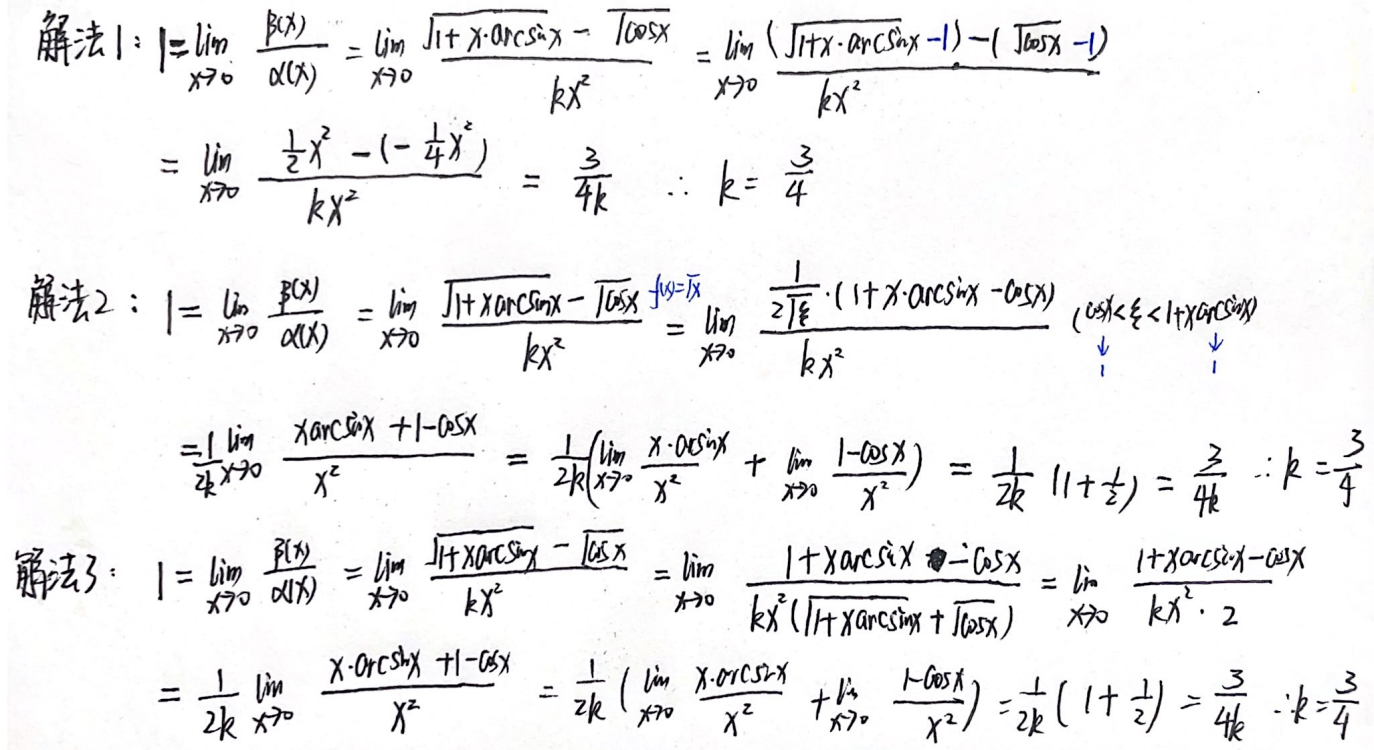 解法1: 1 = lim_{x→0} β(x)/α(x) = lim_{x→0} (√(1+x·arcsinx) - √cosx)/(kx²) = lim_{x→0} ((√(1+x·arcsinx) -1) - (√cosx -1))/(kx²)
= lim_{x→0} (½x² - (-¼x²))/(kx²) = 3/(4k) ∴ k = 3/4
解法2: 1 = lim_{x→0} β(x)/α(x) = lim_{x→0} (√(1+xarcsinx) - √cosx)/(kx²) f(x)=√x = lim_{x→0} (1/(2√ξ)·(1+x·arcsinx - cosx))/(kx²) (cosx<ξ<1+xarcsinx)
↓ ↓
1 1
= 1/(2k) lim_{x→0} (xarcsinx+1-cosx)/x² = 1/(2k) (lim_{x→0} (x·arcsinx)/x² + lim_{x→0} (1-cosx)/x²) = 1/(2k) (1+½) = 3/(4k) ∴ k = 3/4
解法3: 1 = lim_{x→0} β(x)/α(x) = lim_{x→0} (√(1+xarcsinx) - √cosx)/(kx²) = lim_{x→0} (1+xarcsinx - cosx)/(kx²(√(1+xarcsinx) + √cosx)) = lim_{x→0} (1+xarcsinx-cosx)/(kx²·2)
= 1/(2k) lim_{x→0} (x·arcsinx+1-cosx)/x² = 1/(2k) (lim_{x→0} (x·arcsinx)/x² + lim_{x→0} (1-cosx)/x²) = 1/(2k) (1+½) = 3/(4k) ∴ k = 3/4